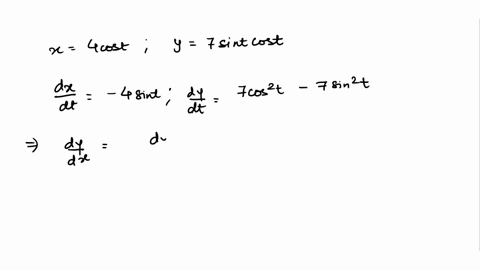 x = 4cost ; y = 7sintcost
dx/dt = -4sint ; dy/dt = 7cos²t - 7sin²t
⇒ dy/dx = d